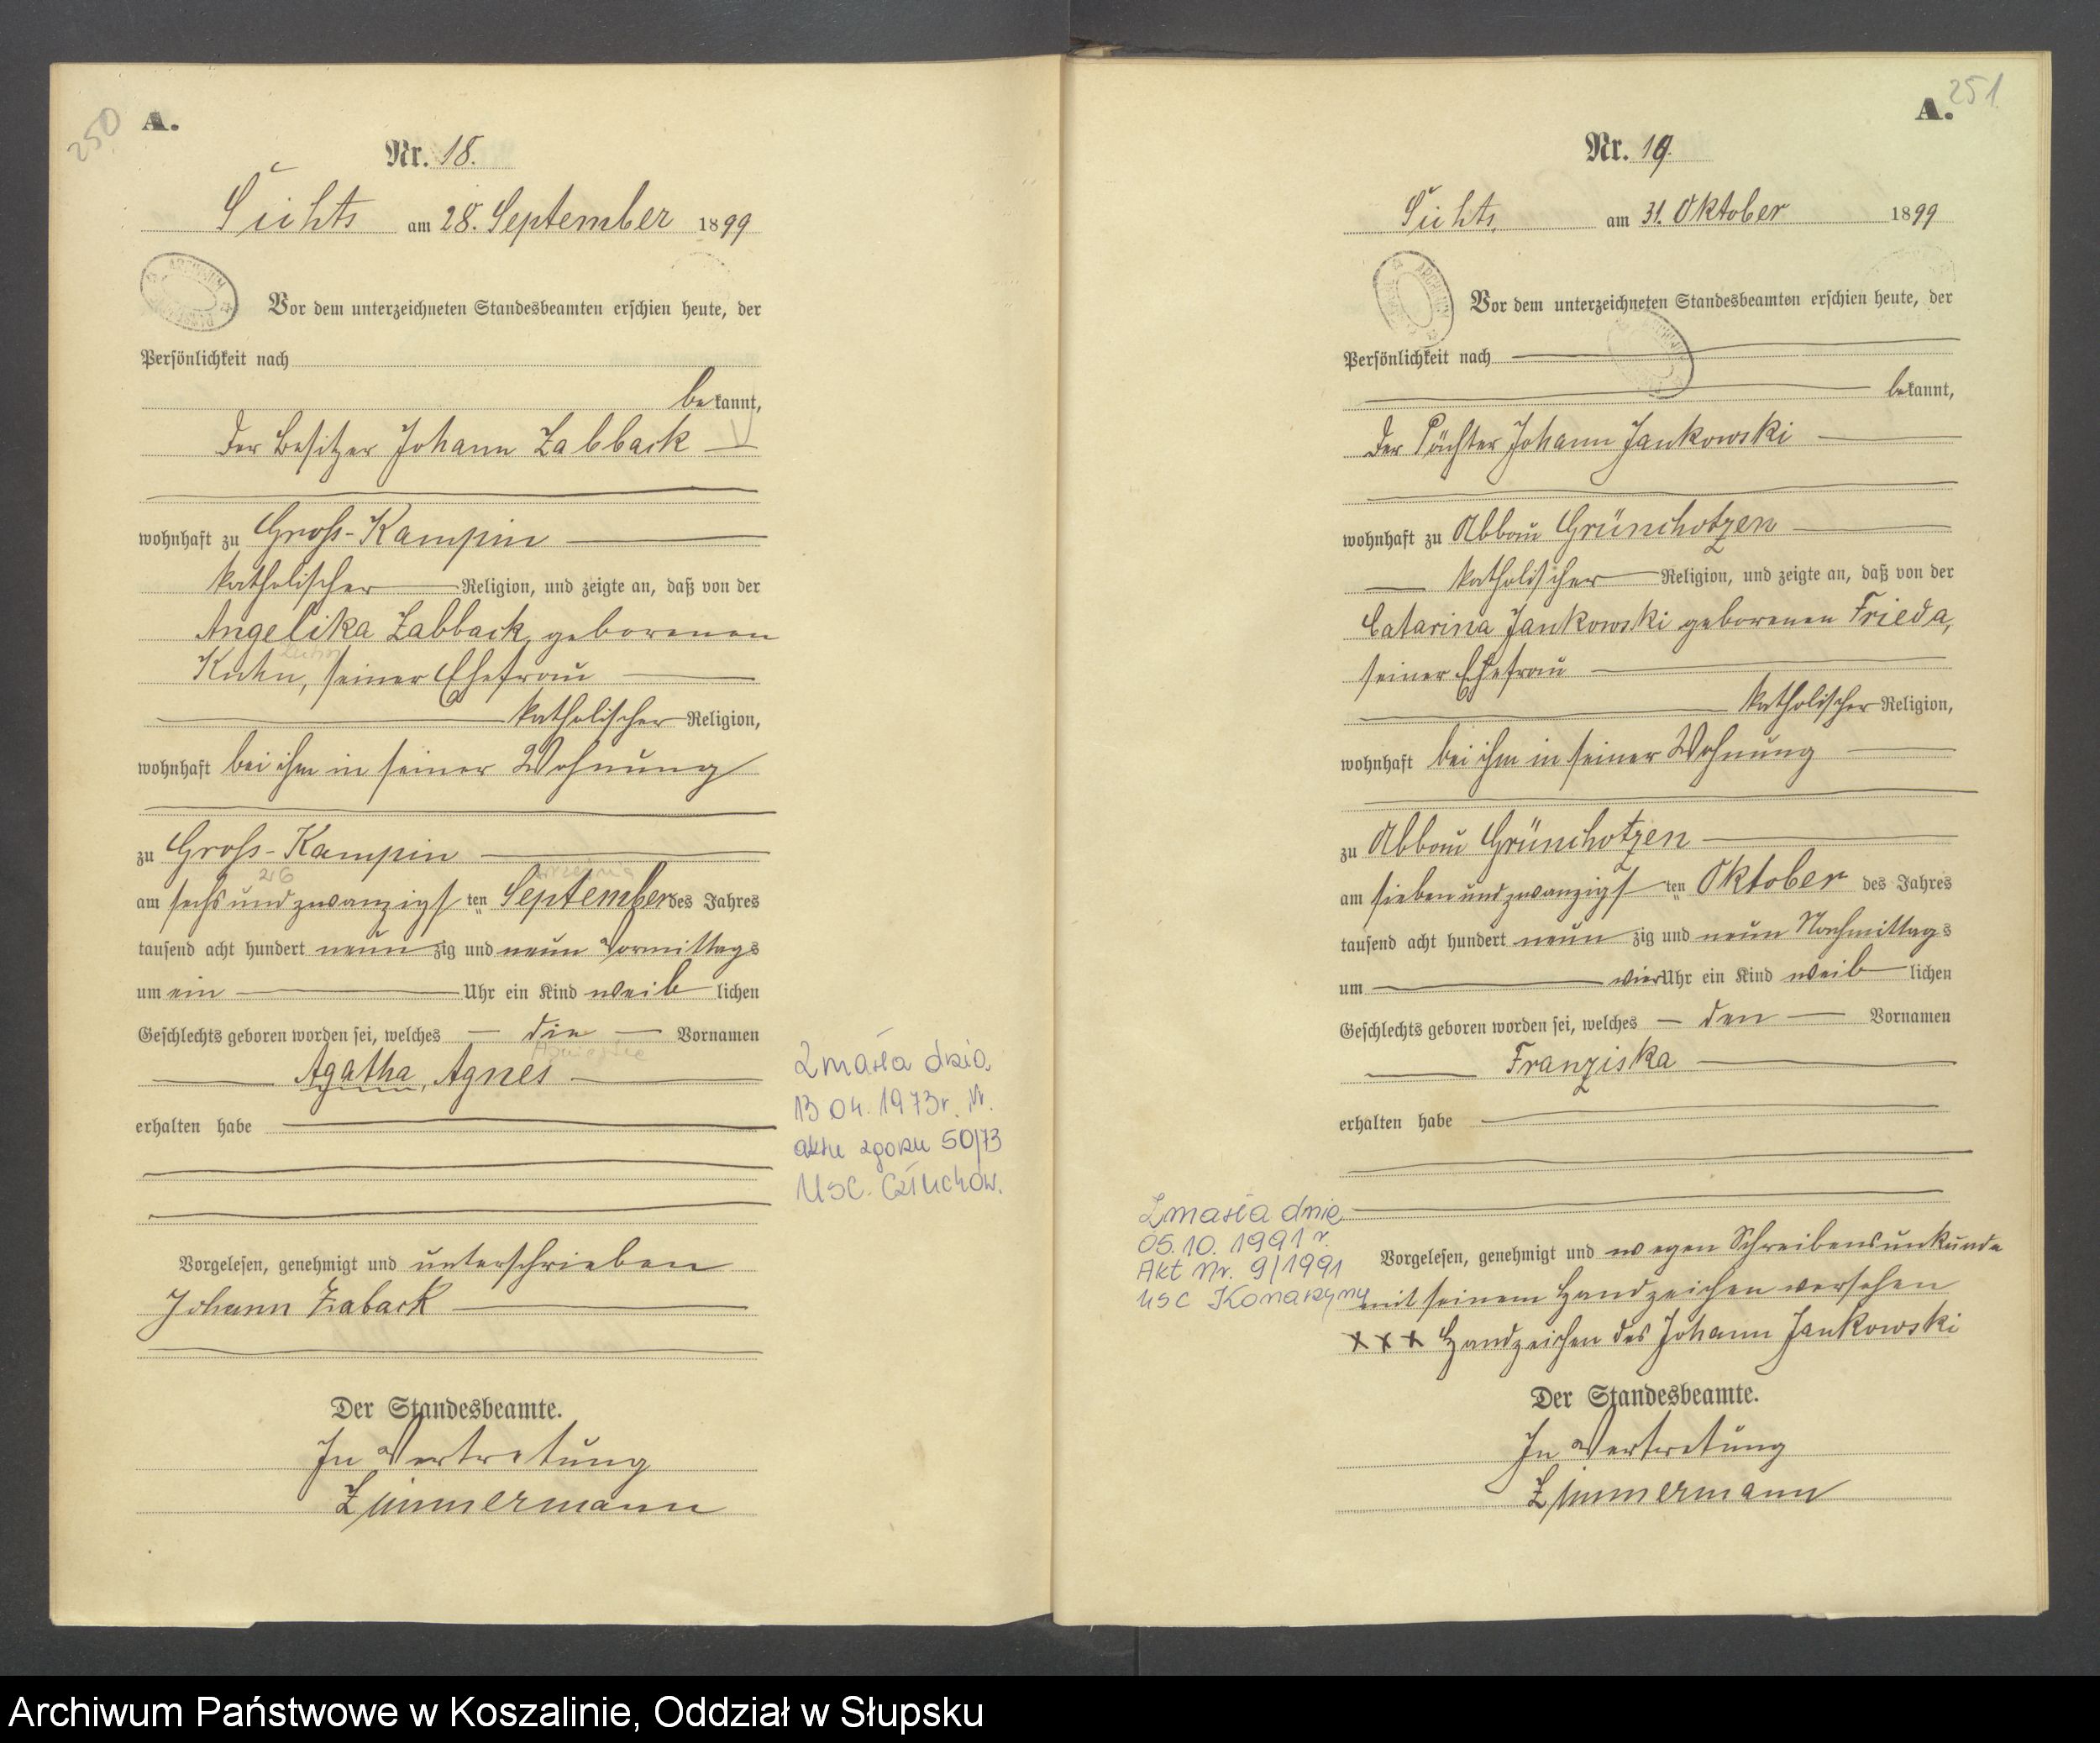 250
A.
Nr. 18.
Sichts am 28. September 1899
Vor dem unterzeichneten Standesbeamten erschien heute, der
Persönlichkeit nach
bekannt,
der Besitzer Johann Zabback
wohnhaft zu Gross-Kampin
katholischer Religion, und zeigte an, daß von der
Angelika Zabback, geborenen
Kuhn, seiner Ehefrau
katholischer Religion,
wohnhaft bei ihm in seiner Wohnung
zu Gross-Kampin
26 września
am sechsundzwanzigsten September des Jahres
tausend acht hundert neunzig und neun Vormittags
um ein Uhr ein Kind weiblichen
Geschlechts geboren worden sei, welches die Vornamen
Agatha, Agnes
erhalten habe
Vorgelesen, genehmigt und unterschrieben
Johann Zaback
Der Standesbeamte.
In Vertretung
Zimmermann
Zmarła dnia
13 04. 1973r. Nr.
aktu zgonu 50/73
USC. Człuchów.
251
A.
Nr. 19.
Sichts, am 31. Oktober 1899
Vor dem unterzeichneten Standesbeamten erschien heute, der
Persönlichkeit nach
bekannt,
der Pächter Johann Jankowski
wohnhaft zu Abbau Grünchotzen
katholischer Religion, und zeigte an, daß von der
Catarina Jankowski geborenen Frieda,
seiner Ehefrau
katholischer Religion,
wohnhaft bei ihm in seiner Wohnung
zu Abbau Grünchotzen
am siebenundzwanzigsten Oktober des Jahres
tausend acht hundert neunzig und neun Nachmittags
um vier Uhr ein Kind weiblichen
Geschlechts geboren worden sei, welches den Vornamen
Franziska
erhalten habe
Zmarła dnia
05.10.1991 r.
Akt Nr. 9/1991
USC Konarzyny
Vorgelesen, genehmigt und wegen Schreibensunkunde
mit seinem Handzeichen versehen
xxx Handzeichen des Johann Jankowski
Der Standesbeamte.
In Vertretung
Zimmermann
Archiwum Państwowe w Koszalinie, Oddział w Słupsku